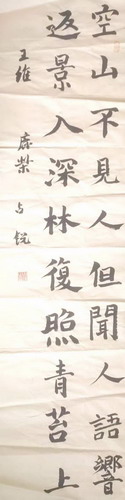 空山不見人但聞人語響
返景入深林復照青苔上
王維 鹿柴 与锐